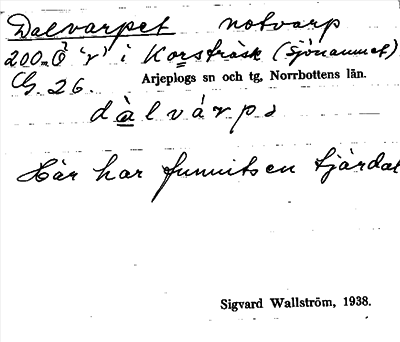 Dalvarpet notvarp
200 m Ö 'r' i Korsträsk (sjönamnet)
Arjeplogs sn och tg, Norrbottens län.
G. 26.
dàlvárpə
Här har funnits en tjärdal
Sigvard Wallström, 1938.